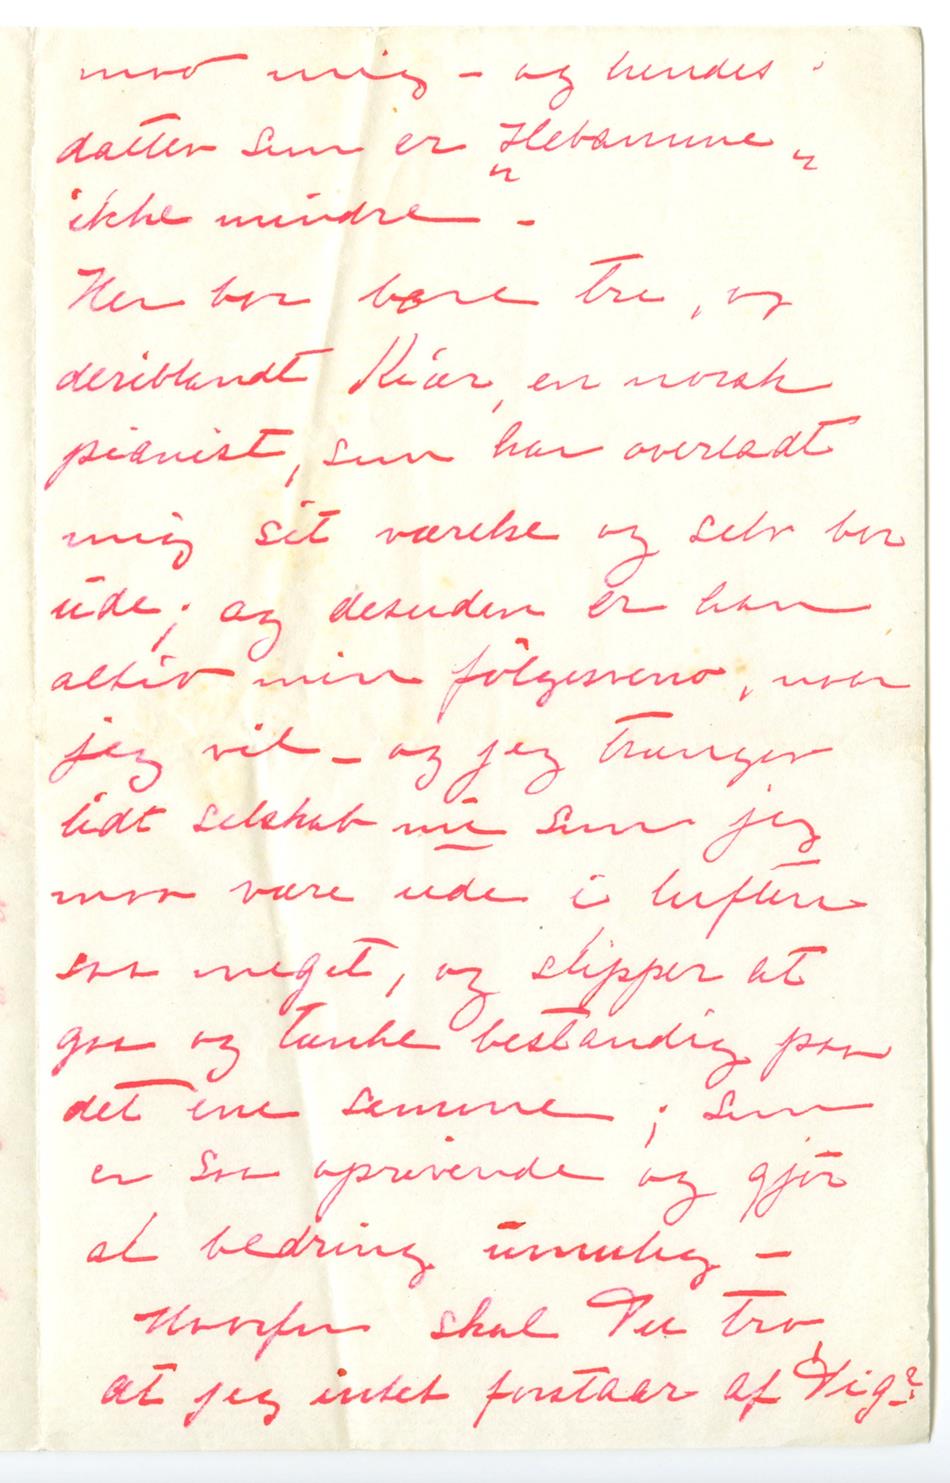 mod mig – og hendes
datter som er „Hebamme"
ikke mindre –
Her bor bare tre, og
deriblandt Kiær, en norsk
pianist, som har overladt
mig sit værelse og selv bor
ude; og desuden er han
altid min følgesvend, naar
jeg vil – og jeg trænger
lidt selskab nu som jeg
maa være ude i luften
saa meget, og slipper at
gaa og tænke bestandig paa
det ene samme; som
er saa oprivende og gjør
al bedring umulig –
Hvorfor skal Du tro,
at jeg intet forstaar af Dig?